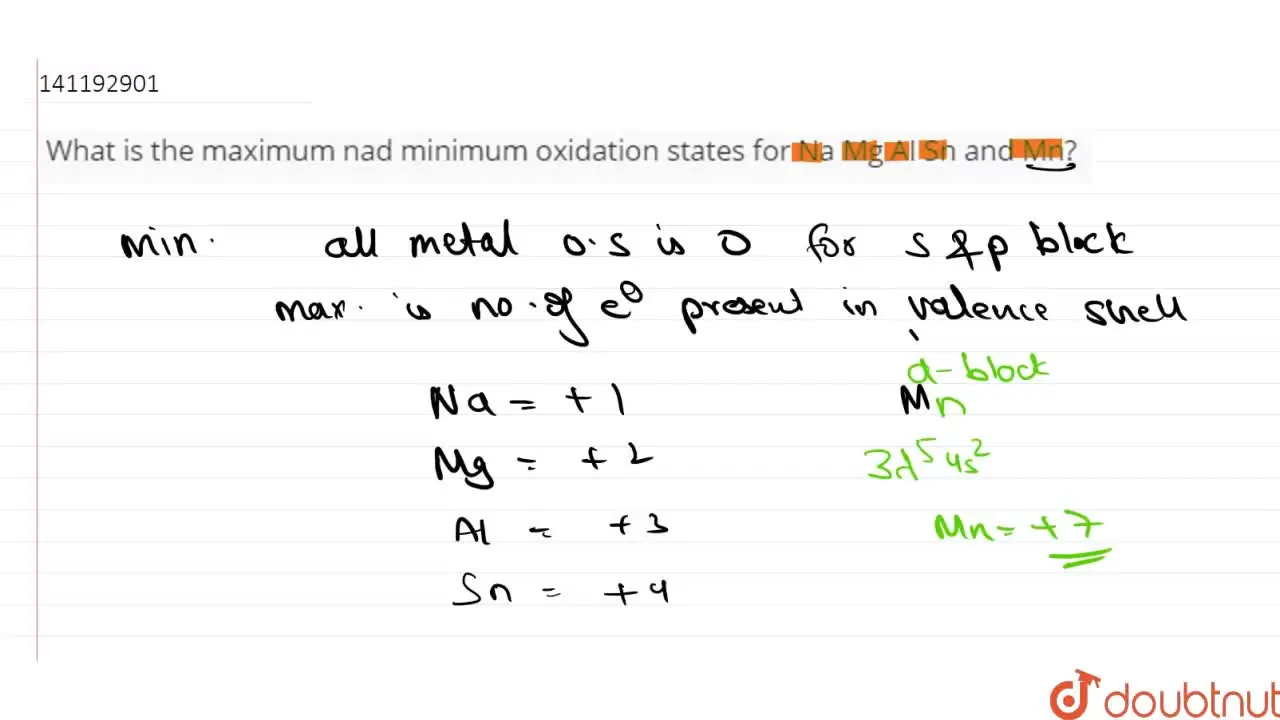 141192901
What is the maximum nad minimum oxidation states for Na Mg Al Sn and Mn?
min. all metal o.s is 0 for s & p block
max. is no. of e⊖ present in valence shell
d-block
Na = +1
Mn
Mg = +2
3d⁵ 4s²
Al = +3
Mn = +7
Sn = +4
doubtnut